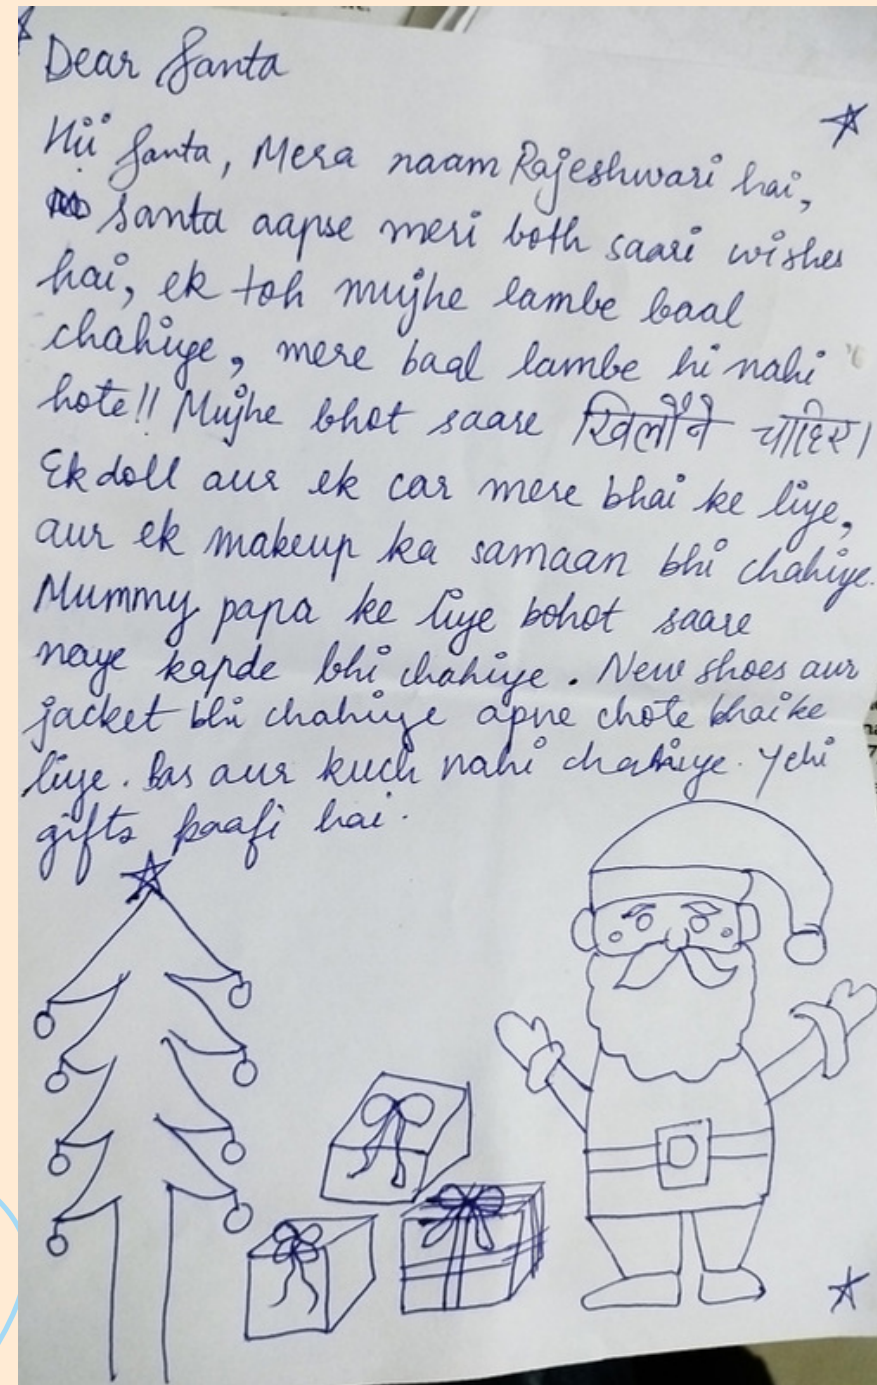 Dear Santa
Hii Santa, Mera naam Rajeshwari hai,
Santa aapse meri both saari wishes
hai, ek toh mujhe lambe baal
chahiye, mere baal lambe hi nahi
hote!! Mujhe bhot saare खिलौने चाहिए।
Ek doll aur ek car mere bhai ke liye,
aur ek makeup ka samaan bhi chahiye.
Mummy papa ke liye bohot saare
naye kapde bhi chahiye. New shoes aur
jacket bhi chahiye apne chote bhai ke
liye. Bas aur kuch nahi chahiye. Yehi
gifts kaafi hai.